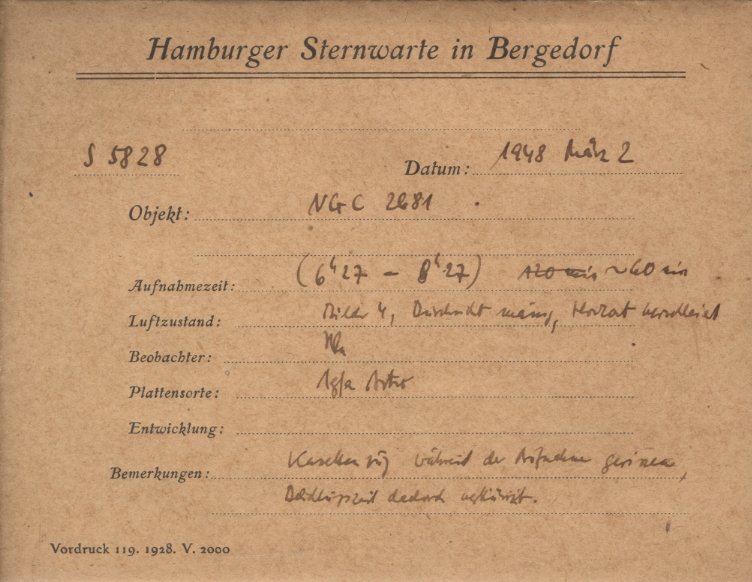 Hamburger Sternwarte in Bergedorf
S 5828
Datum: 1948 März 2
Objekt: NGC 2681
Aufnahmezeit: (6h27 – 8h27) 120 min ~60 min
Luftzustand: Bilder 4, Durchsicht mäßig, Horizont verschleiert
Beobachter:
Plattensorte: Agfa Astro
Entwicklung:
Bemerkungen: während der Aufnahme gerissen,
Belichtungszeit dadurch verkürzt.
Vordruck 119. 1928. V. 2000